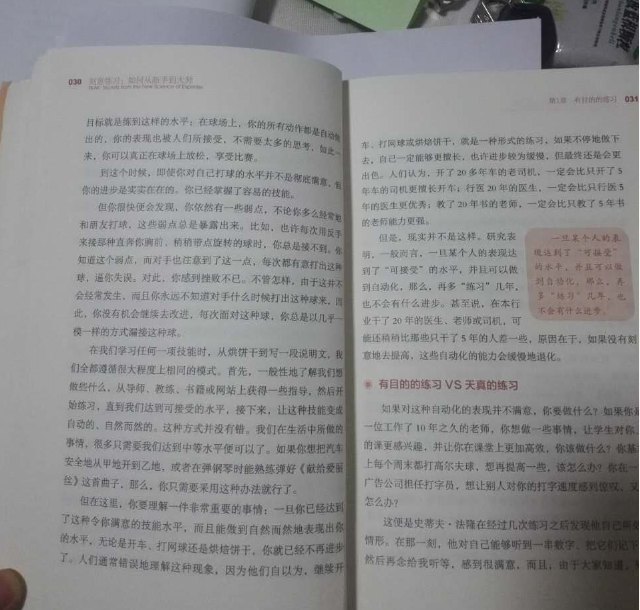 030 刻意练习：如何从新手到大师
目标就是练到这样的水平：在球场上，你的所有动作都是自动做
出的，你的表现也被人们所接受，不需要太多的思考。如此一
来，你可以真正在球场上放松，享受比赛。
到这个时候，即使你对自己打球的水平并不是彻底满意，但
你的进步是实实在在的。你已经掌握了容易的技能。
但你很快便会发现，你依然有一些弱点，不论你多么经常地
和朋友打球，这些弱点总是暴露出来。比如，也许每次用反手
来接那种直奔你胸前、稍稍带点旋转的球时，你总是接不到，你
知道这个弱点，而对手也注意到了这一点，每次都有意打出这种
球，逼你失误。对此，你感到挫败不已。不管怎样，由于这并不
会经常发生，而且你永远不知道对手什么时候打出这种球来，因
此，你没有机会继续去改进，每次面对这种球，你总是以几乎一
模一样的方式漏接这种球。
在我们学习任何一项技能时，从烘饼干到写一段说明文，我
们全都遵循很大程度上相同的模式。首先，一般性地了解我们想
做些什么，从导师、教练、书籍或网站上获得一些指导，然后开
始练习，直到我们达到可接受的水平，接下来，让这种技能变成
自动的、自然而然的。这种方式并没有错。我们在生活中所做的
事情，很多只需要我们达到中等水平便可以了。如果你想把汽车
安全地从甲地开到乙地，或者在弹钢琴时能熟练弹好《献给爱丽
丝》这首曲子，那么，你只需要采用这种办法就行了。
但在这里，你要理解一件非常重要的事情：一旦你已经达到
了这种令你满意的技能水平，而且能做到自然而然地表现出你
的水平，无论是开车、打网球还是烘焙饼干，你就已经不再进步
了。人们通常错误地理解这种现象，因为他们自以为，继续开
第1章 有目的的练习 031
车、打网球或烘焙饼干，就是一种形式的练习，如果不停地做下
去，自己一定能够更擅长，也许进步较为缓慢，但最终还是会更
出色。人们认为，开了20多年车的老司机，一定会比只开了5
年车的司机更擅长开车；行医20年的医生，一定会比只行医5
年的医生更优秀；教了20年书的老师，一定会比只教了5年书
的老师能力更强。
但是，现实并不是这样。研究表
明，一般而言，一旦某个人的表现达
到了“可接受”的水平，并且可以做
到自动化，那么，再多“练习”几年，
也不会有什么进步。甚至说，在本行
业干了20年的医生、老师或司机，可
能还稍稍比那些只干了5年的人差一些，原因在于，如果没有刻
意地去提高，这些自动化的能力会缓慢地退化。
一旦某个人的表
现达到了“可接受”
的水平，并且可以做
到自动化，那么，再
多“练习”几年，也
不会有什么进步。
有目的的练习 VS 天真的练习
如果对这种自动化的表现并不满意，你要做什么？如果你是
一位工作了10年之久的老师，你想做一些事情，让学生对你上
的课更感兴趣，并让你在课堂上更加高效，你该做什么？你
上每个周末都打高尔夫球，想再提高一些，该怎么办？你在一
广告公司担任打字员，想让别人对你的打字速度感到惊叹，又
怎么办？
这便是史蒂夫·法隆在经过几次练习之后发现他自己所处
情形。在那一刻，他对自己能够听到一串数字、把它们记下
然后再念给我听等，感到很满意，而且，由于大家知道，